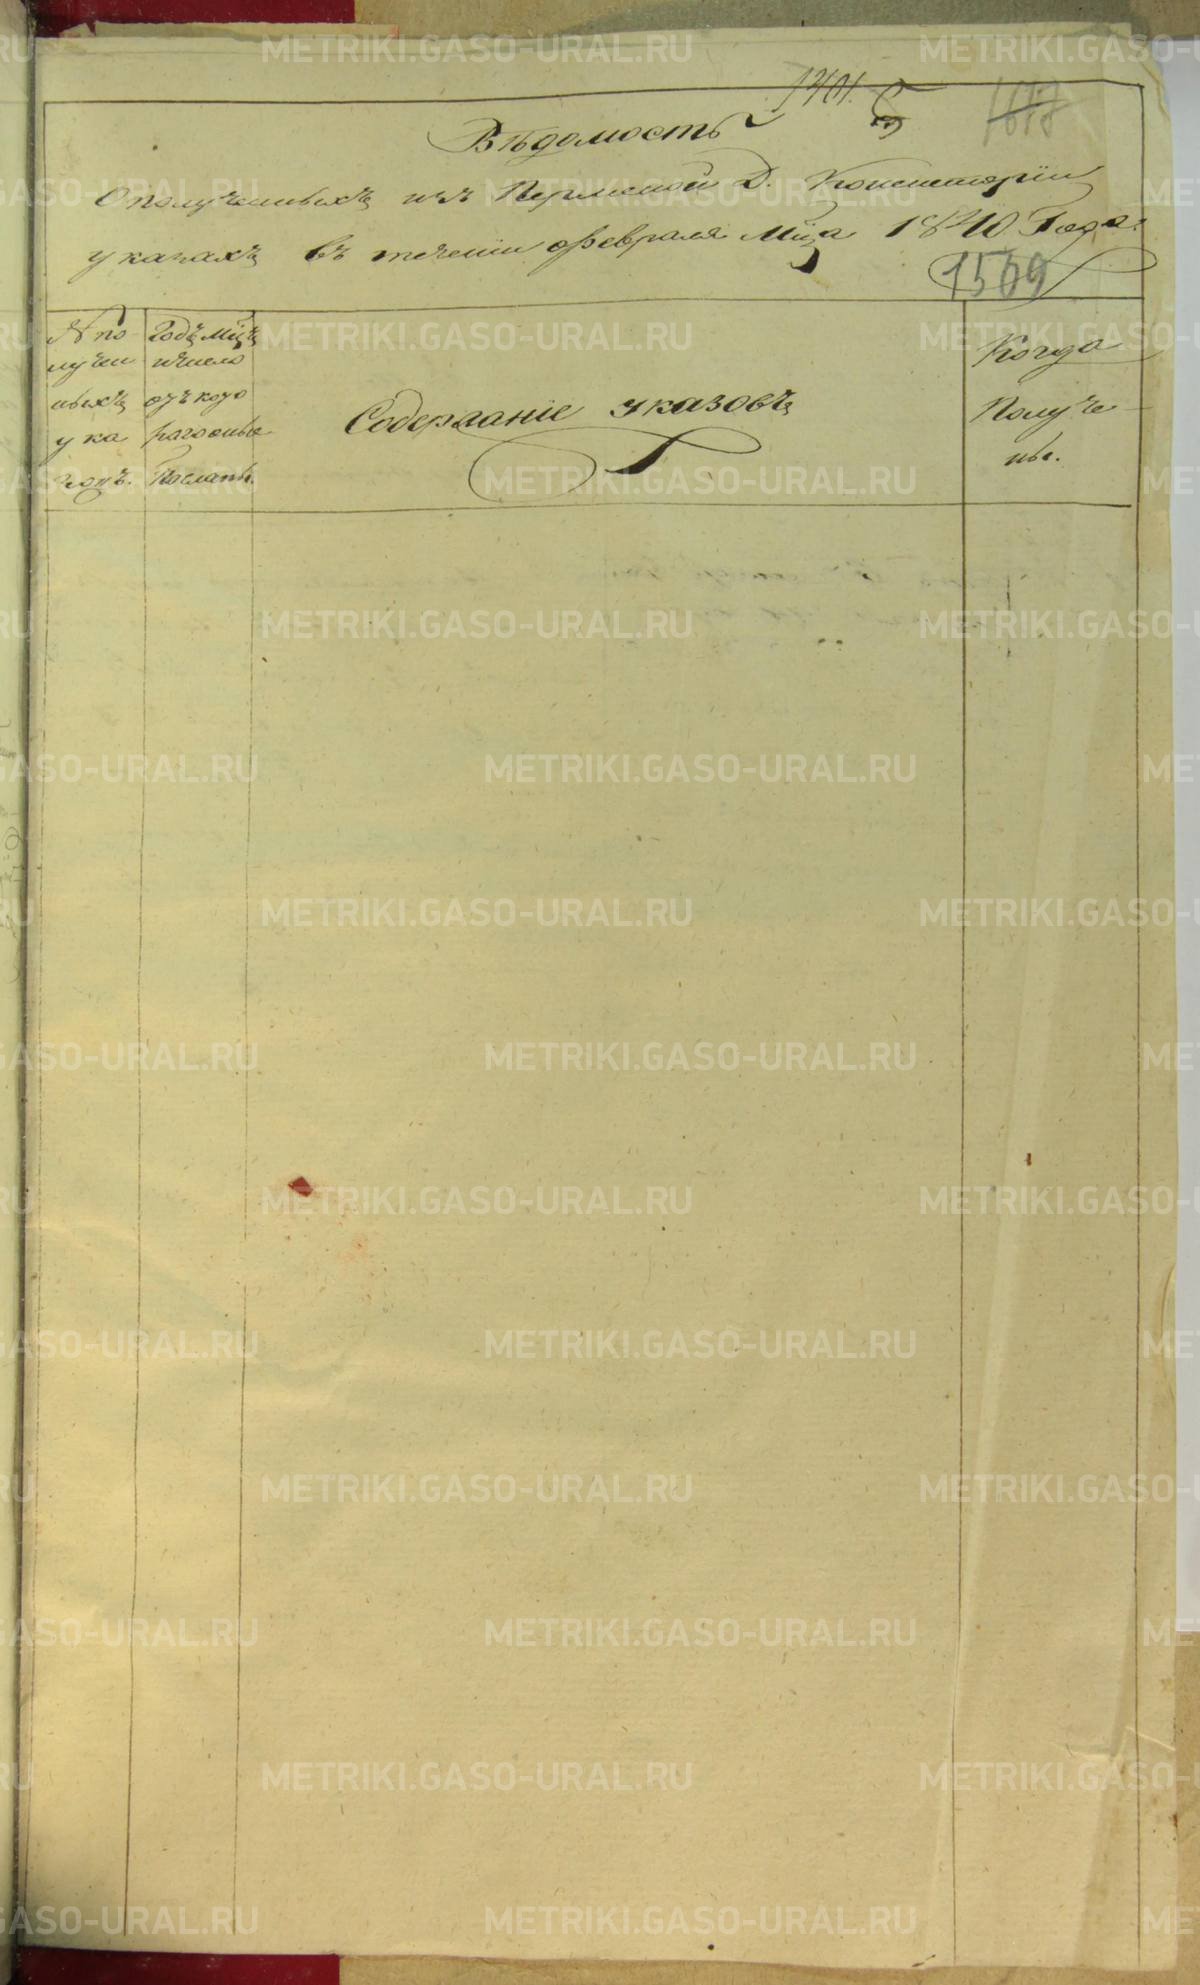 1401.
1618
Вѣдомость
О полученныхъ изъ Пермской Д. Консисторіи
указахъ въ теченіи февраля М̃ца 1840 Года.
1509
N по-
лучен
ныхъ
ука
зовъ.
Годъ, М̃цъ
и число
отъ кого
Посланы.
Содержаніе указовъ
Когда
Получе-
ны.
METRIKI.GASO-URAL.RU